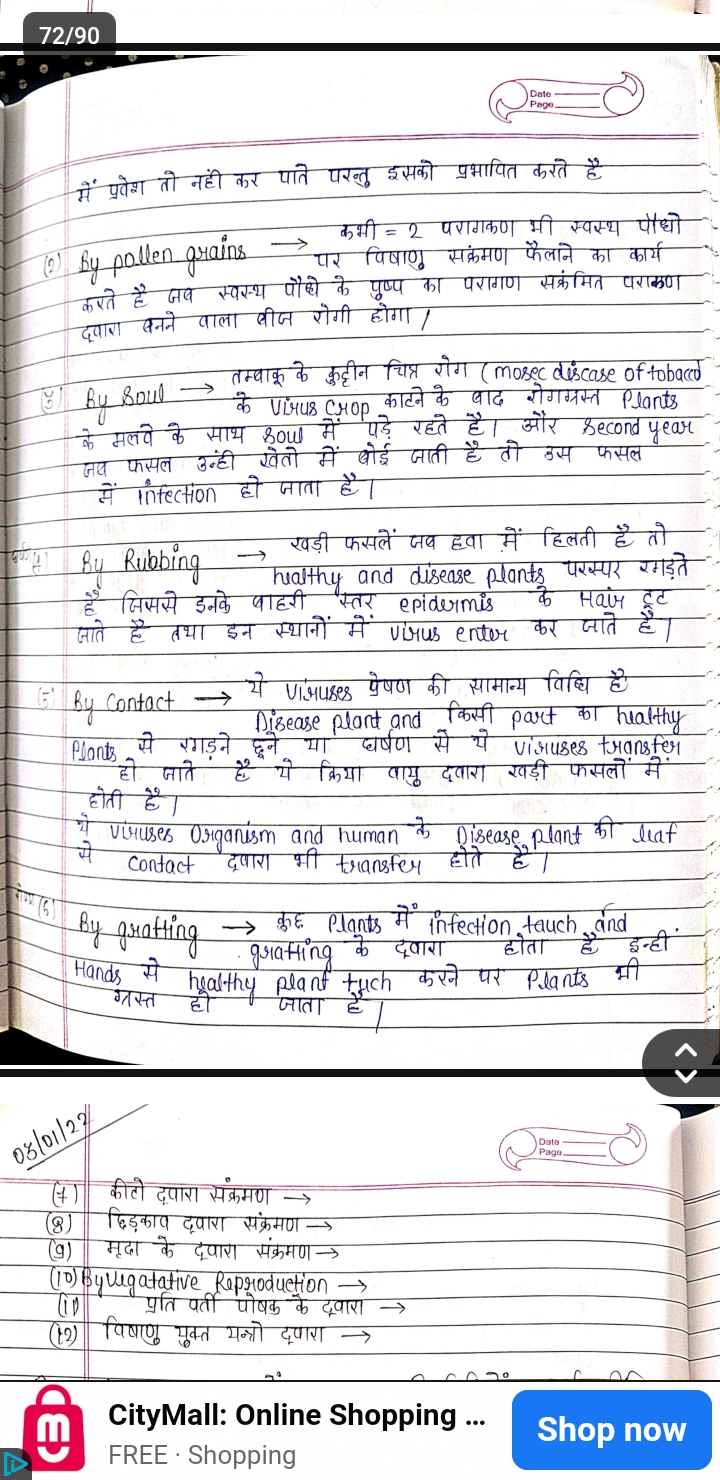 72/90
Date
Page
में प्रवेश तो नही कर पाते परन्तु इसको प्रभावित करते है
(2) By pollen grains → कभी = 2 परागकण भी स्वस्थ पौधो
पर विषाणु संक्रमण फैलाने का कार्य
करते है जब स्वस्थ पौधे के पुष्प का परागण संक्रमित पराकण
दवारा बनने वाला बीज रोगी होगा /
(3) By Soul → तम्बाकू के कुद्दीन चित्र रोग (mosec discase of tobacco
के virus crop काटने के बाद रोगग्रस्त Plants
के मलवे के साथ soul में पड़े रहते है। और second year
जब फसल उन्ही खेतो में बोई जाती है तो उस फसल
में infection हो जाता है।
(4) By Rubbing → खड़ी फसलें जब हवा में हिलती है तो
healthy and disease plants परस्पर रगड़ते
है जिससे इनके बाहरी स्तर epidermis के Hair टूट
जाते है तथा इन स्थानों में virus enter कर जाते है।
(5) By Contact → ये viruses प्रेषण की सामान्य विधि है
Disease plant and किसी part का healthy
Plants से रगड़ने छूने या घर्षण से ये viruses transfer
हो जाते है ये क्रिया वायु दवारा खड़ी फसलों में
होती है।
ये viruses Organism and human के Disease plant की leaf
से contact दवारा भी transfer होते है।
(6) By grafting → कुछ Plants में infection tauch and
grafting के दवारा होता है इन्ही
Hands से healthy plant tuch करने पर Plants भी
ग्रस्त हो जाता है।
03/01/22
Date
Page
(7) कीटो दवारा संक्रमण →
(8) छिड़काव दवारा संक्रमण →
(9) मृदा के दवारा संक्रमण →
(10) By vegatative Reproduction →
(11) प्रति वर्ती पोषक के दवारा →
(12) विषाणु युक्त यन्त्रो दवारा →
CityMall: Online Shopping ...
FREE · Shopping
Shop now